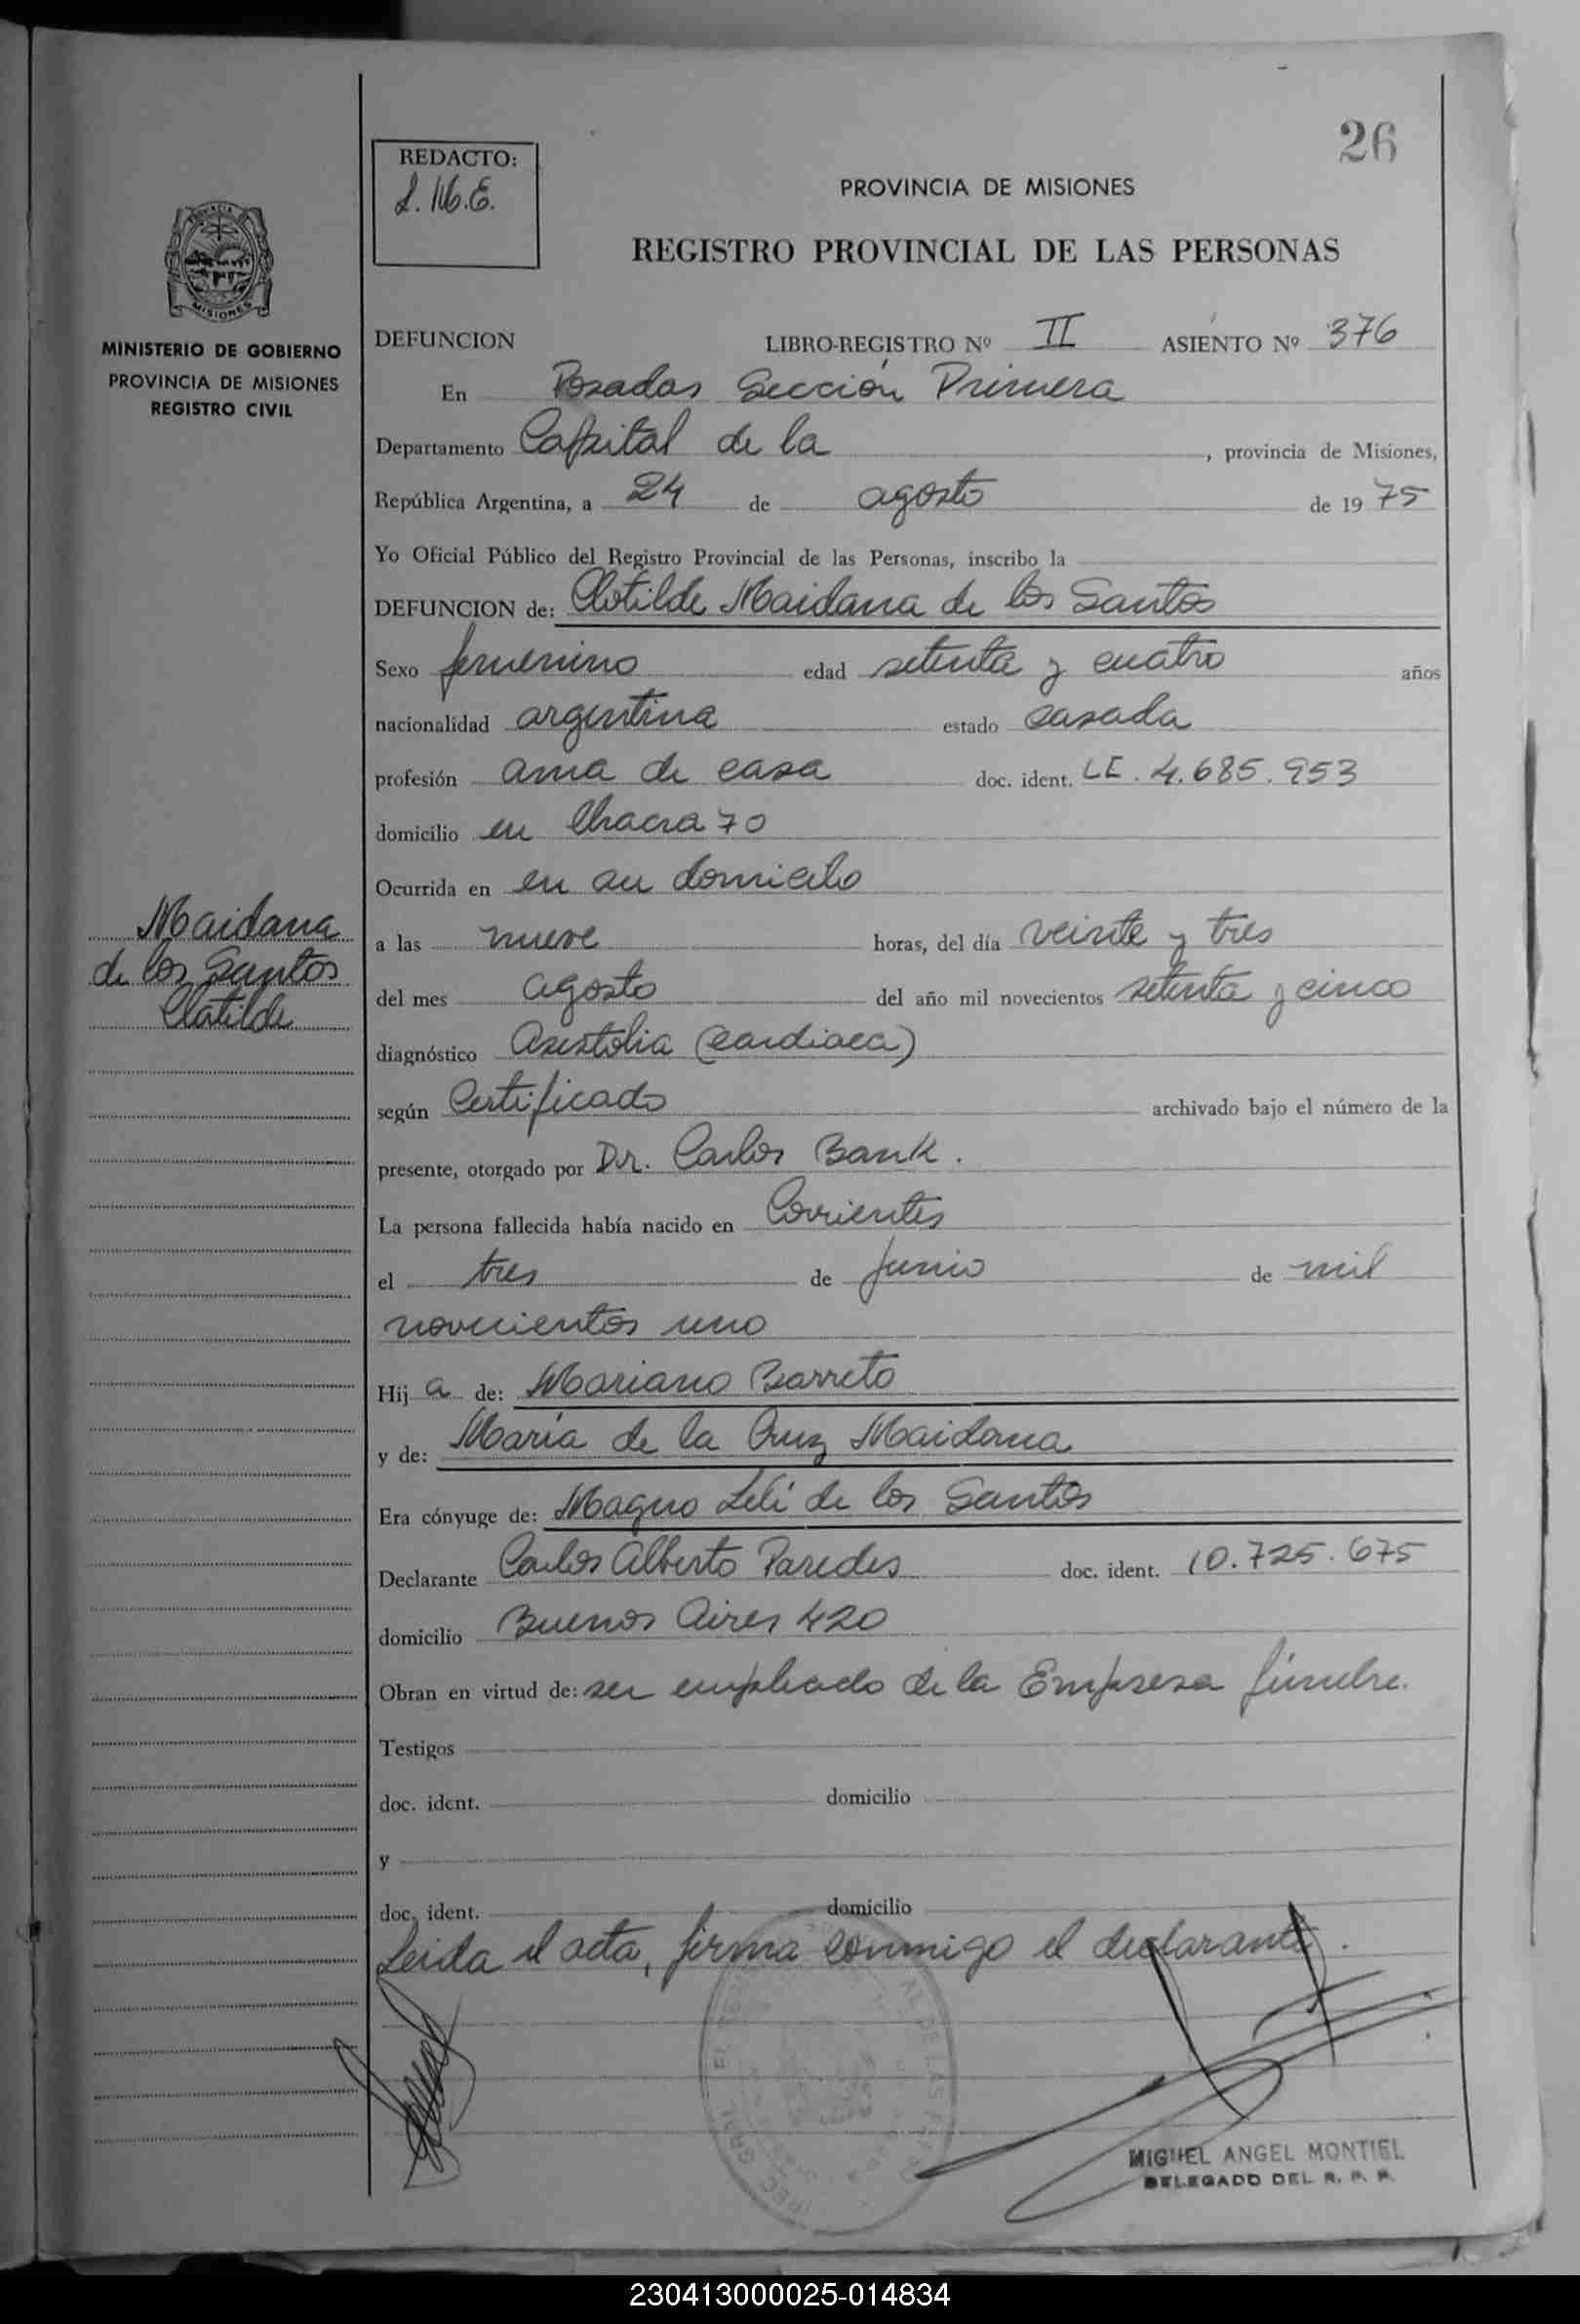 26
REDACTO:
PROVINCIA DE MISIONES
REGISTRO PROVINCIAL DE LAS PERSONAS
MISIONES
MINISTERIO DE GOBIERNO
PROVINCIA DE MISIONES
REGISTRO CIVIL
DEFUNCION LIBRO-REGISTRO Nº II ASIENTO Nº 376
En Posadas Sección Primera
Departamento Capital de la , provincia de Misiones,
República Argentina, a 24 de agosto de 1975
Yo Oficial Público del Registro Provincial de las Personas, inscribo la
DEFUNCION de: Clotilde Maidana de los Santos
Sexo femenino edad setenta y cuatro años
nacionalidad argentina estado casada
profesión ama de casa doc. ident. LE. 4.685.953
domicilio en Chacra 70
Ocurrida en en su domicilio
Maidana
de los Santos
Clotilde
a las nueve horas, del día veinte y tres
del mes agosto del año mil novecientos setenta y cinco
diagnóstico Asistolia (cardiaca)
según Certificado archivado bajo el número de la
presente, otorgado por Dr. Carlos Bank.
La persona fallecida había nacido en Corrientes
el tres de junio de mil
novecientos uno
Hija de: Mariano Barreto
y de: María de la Cruz Maidana
Era cónyuge de: Magno de los Santos
Declarante Carlos Alberto Paredes doc. ident. 10.725.675
domicilio Buenos Aires 420
Obran en virtud de: ser empleado de la Empresa fúnebre.
Testigos
doc. ident. domicilio
y
doc. ident. domicilio
Leida el acta, firma conmigo el declarante.
MIGUEL ANGEL MONTIEL
DELEGADO DEL R. P. P.
230413000025-014834